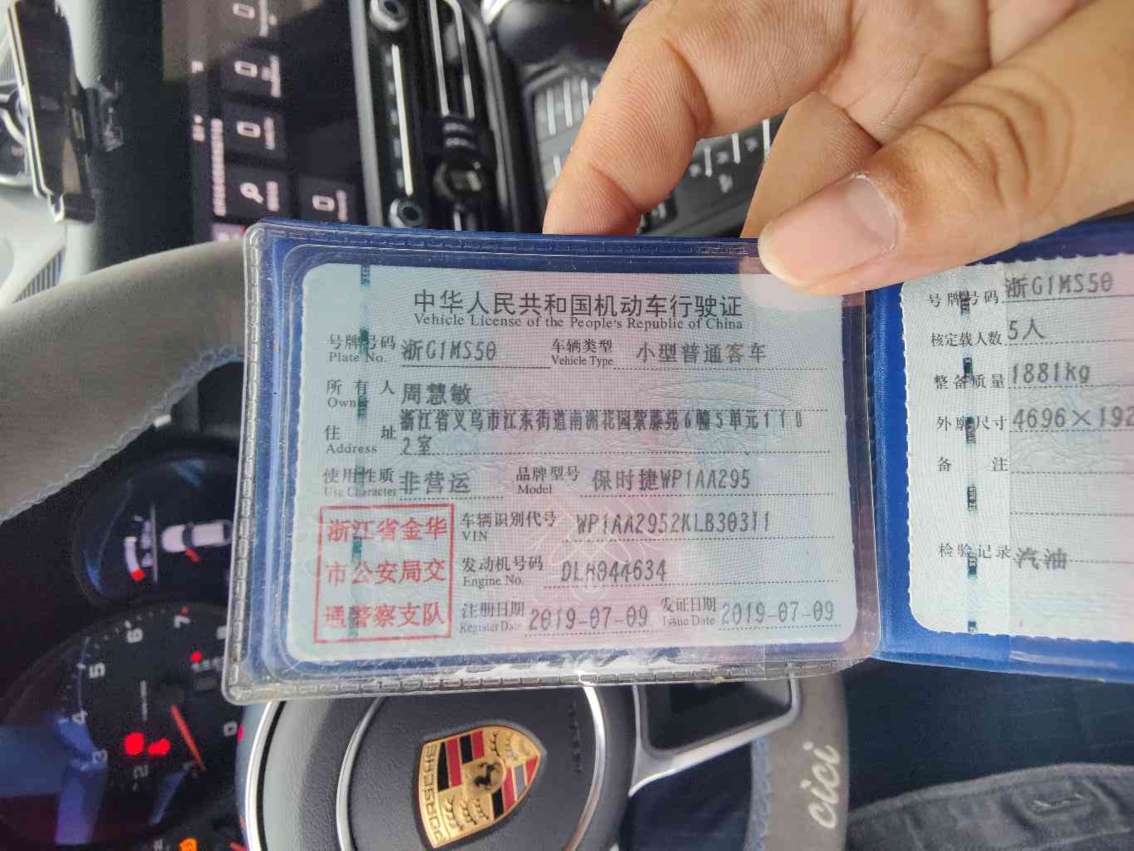 中华人民共和国机动车行驶证
Vehicle License of the People's Republic of China
号牌号码 浙G1MS50 车辆类型 小型普通客车
Plate No. Vehicle Type
所有人 周慧敏
Owner
住址 浙江省义乌市江东街道南洲花园紫藤苑6幢5单元110
Address 2室
使用性质 非营运 品牌型号 保时捷WP1AA295
Use Character Model
浙江省金华
市公安局交
通警察支队
车辆识别代号 WP1AA2952KLB30311
VIN
发动机号码 DLH044634
Engine No.
注册日期 2019-07-09 发证日期 2019-07-09
Register Date Issue Date
号牌号码 浙G1MS50
核定载人数 5人
整备质量 1881kg
外廓尺寸 4696×192
备注
检验记录 汽油
PORSCHE
cici